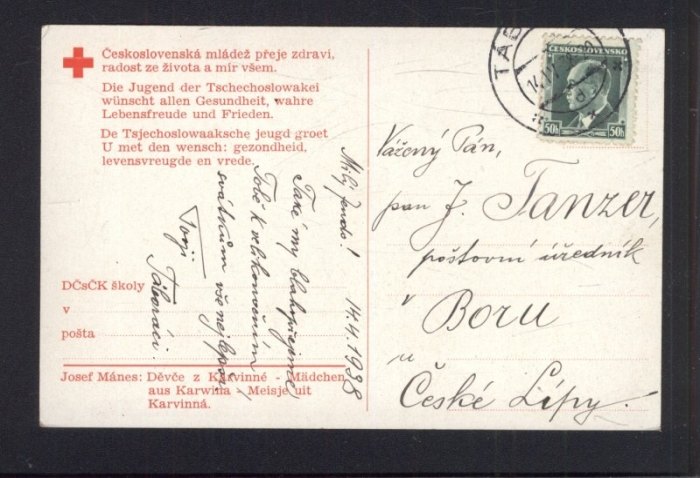 Československá mládež přeje zdraví,
radost ze života a mír všem.
Die Jugend der Tschechoslowakei
wünscht allen Gesundheit, wahre
Lebensfreude und Frieden.
De Tsjechoslowaaksche jeugd groet
U met den wensch: gezondheid,
levensvreugde en vrede.
DČsČK školy
v
pošta
Josef Mánes: Děvče z Karvinné - Mädchen
aus Karwina - Meisje uit
Karvinná.
Milý Jendo! 14.4.1938
Také my blahopřejeme
Tobě k velikonočním
svátkům vše nejlepší
Tvoji
Táboráci.
TÁB
ČESKOSLOVENSKO
50h 50h
Vážený Pán,
pan J. Tanzer,
poštovní úředník
v
BORU
u
České Lípy.